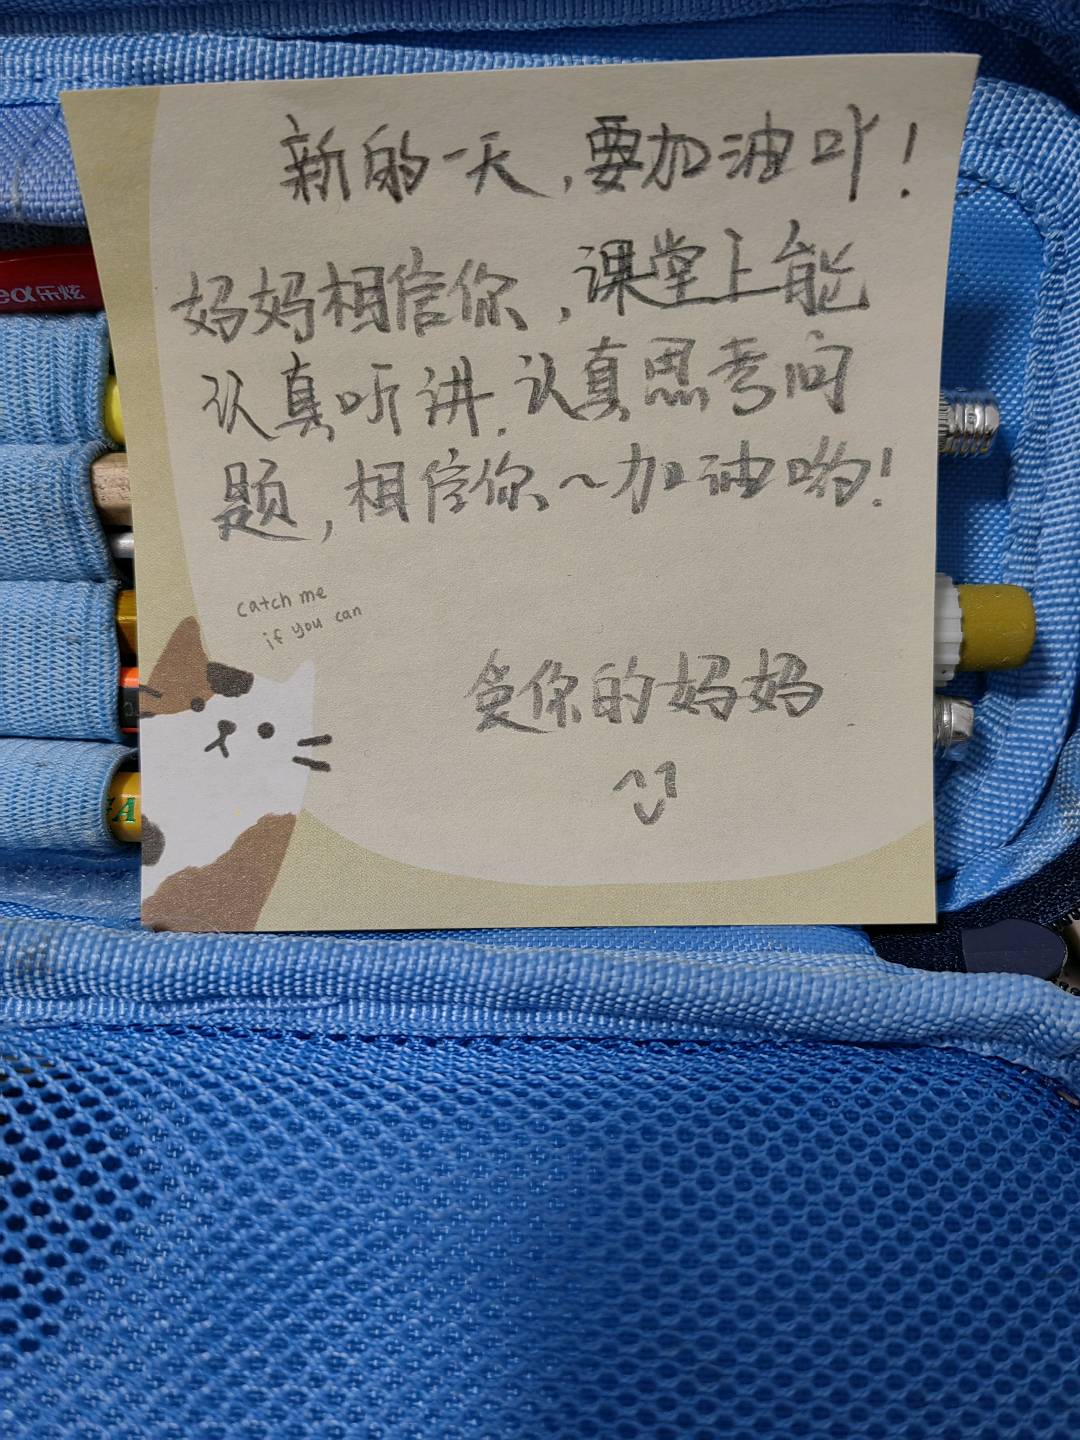 新的一天，要加油吖！
妈妈相信你，课堂上能
认真听讲.认真思考问
题，相信你～加油哟！
catch me
if you can
爱你的妈妈
eα乐炫
A